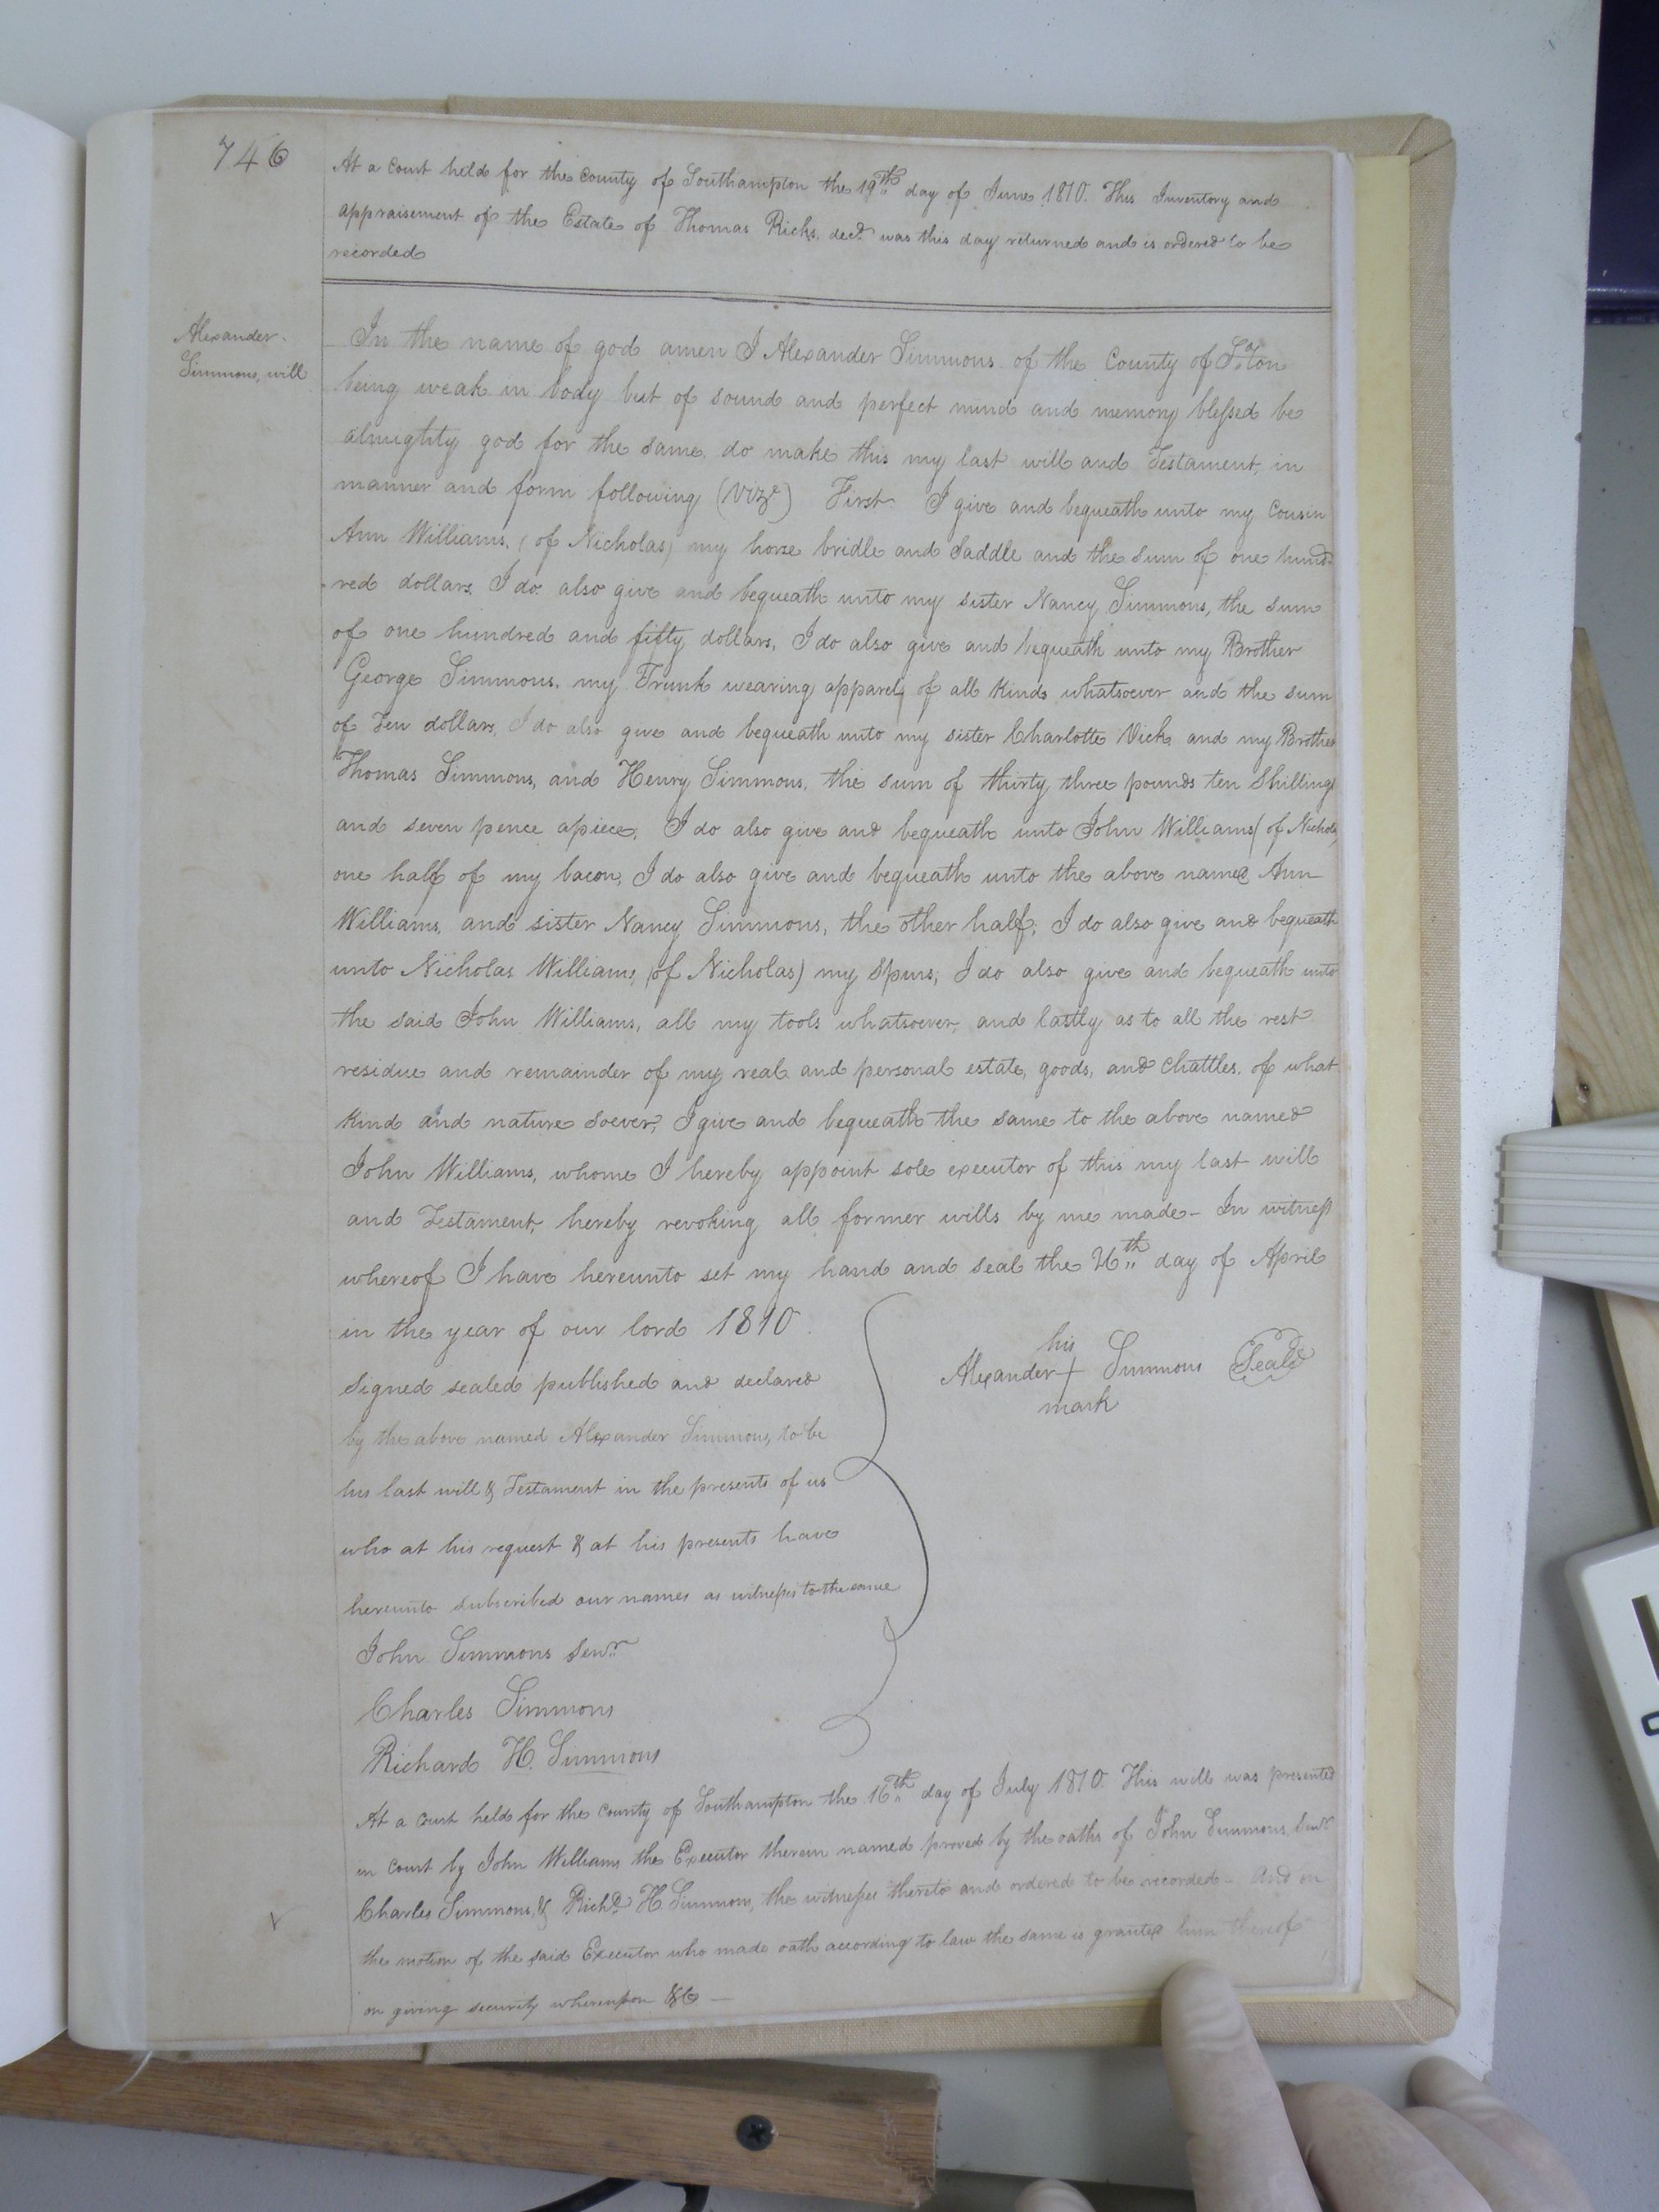 746
At a Court held for the County of Southampton the 19th day of June 1810. This Inventory and
appraisement of the Estate of Thomas Ricks, decd. was this day returned and is ordered to be
recorded
Alexander
Simmons, will
In the name of god amen I Alexander Simmons of the County of
being weak in body but of sound and perfect mind and memory blessed be
almighty god for the same, do make this my last will and Testament, in
manner and form following (Vizt) First I give and bequeath unto my Cousin
Ann Williams, (of Nicholas) my horse bridle and saddle and the sum of one hund
red dollars, I do also give and bequeath unto my sister Nancy Simmons, the sum
of one hundred and fifty dollars, I do also give and bequeath unto my Brother
George Simmons, my Trunk wearing apparel, of all kinds whatsoever and the sum
of Ten dollars, I do also give and bequeath unto my sister Charlotte Vick, and my Brother
Thomas Simmons, and Henry Simmons, the sum of thirty three pounds ten Shillings
and seven pence apiece, I do also give and bequeath unto John Williams (of Nichols
one half of my bacon, I do also give and bequeath unto the above named Ann
Williams, and sister Nancy Simmons, the other half, I do also give and bequeath
unto Nicholas Williams, (of Nicholas) my Spurs, I do also give and bequeath unto
the said John Williams, all my tools whatsoever, and lastly as to all the rest
residue and remainder of my real and personal estate, goods, and Chattles, of what
kind and nature soever, I give and bequeath the same to the above named
John Williams, whome I hereby appoint sole executor of this my last will
and Testament, hereby revoking all former wills by me made - In witness
whereof I have hereunto set my hand and seal the day of April
in the year of our lord 1810
his
Alexander + Simmons Seald
mark
Signed sealed published and declared
by the above named Alexander Simmons, to be
his last will & Testament in the presents of us
who at his request & at his presents have
hereunto subscribed our names as witnesses to the same
John Simmons Senr.
Charles Simmons
Richard H. Simmons
At a Court held for the County of Southampton the 16th day of July 1810. This will was presented
in Court by John Williams the Executor therein named proved by the oaths of John Simmons, Senr
Charles Simmons, & Richd. H Simmons, the witnesses thereto and ordered to be recorded - And on
the motion of the said Executor who made oath according to law the same is granted him thereof
on giving security whereupon &c -